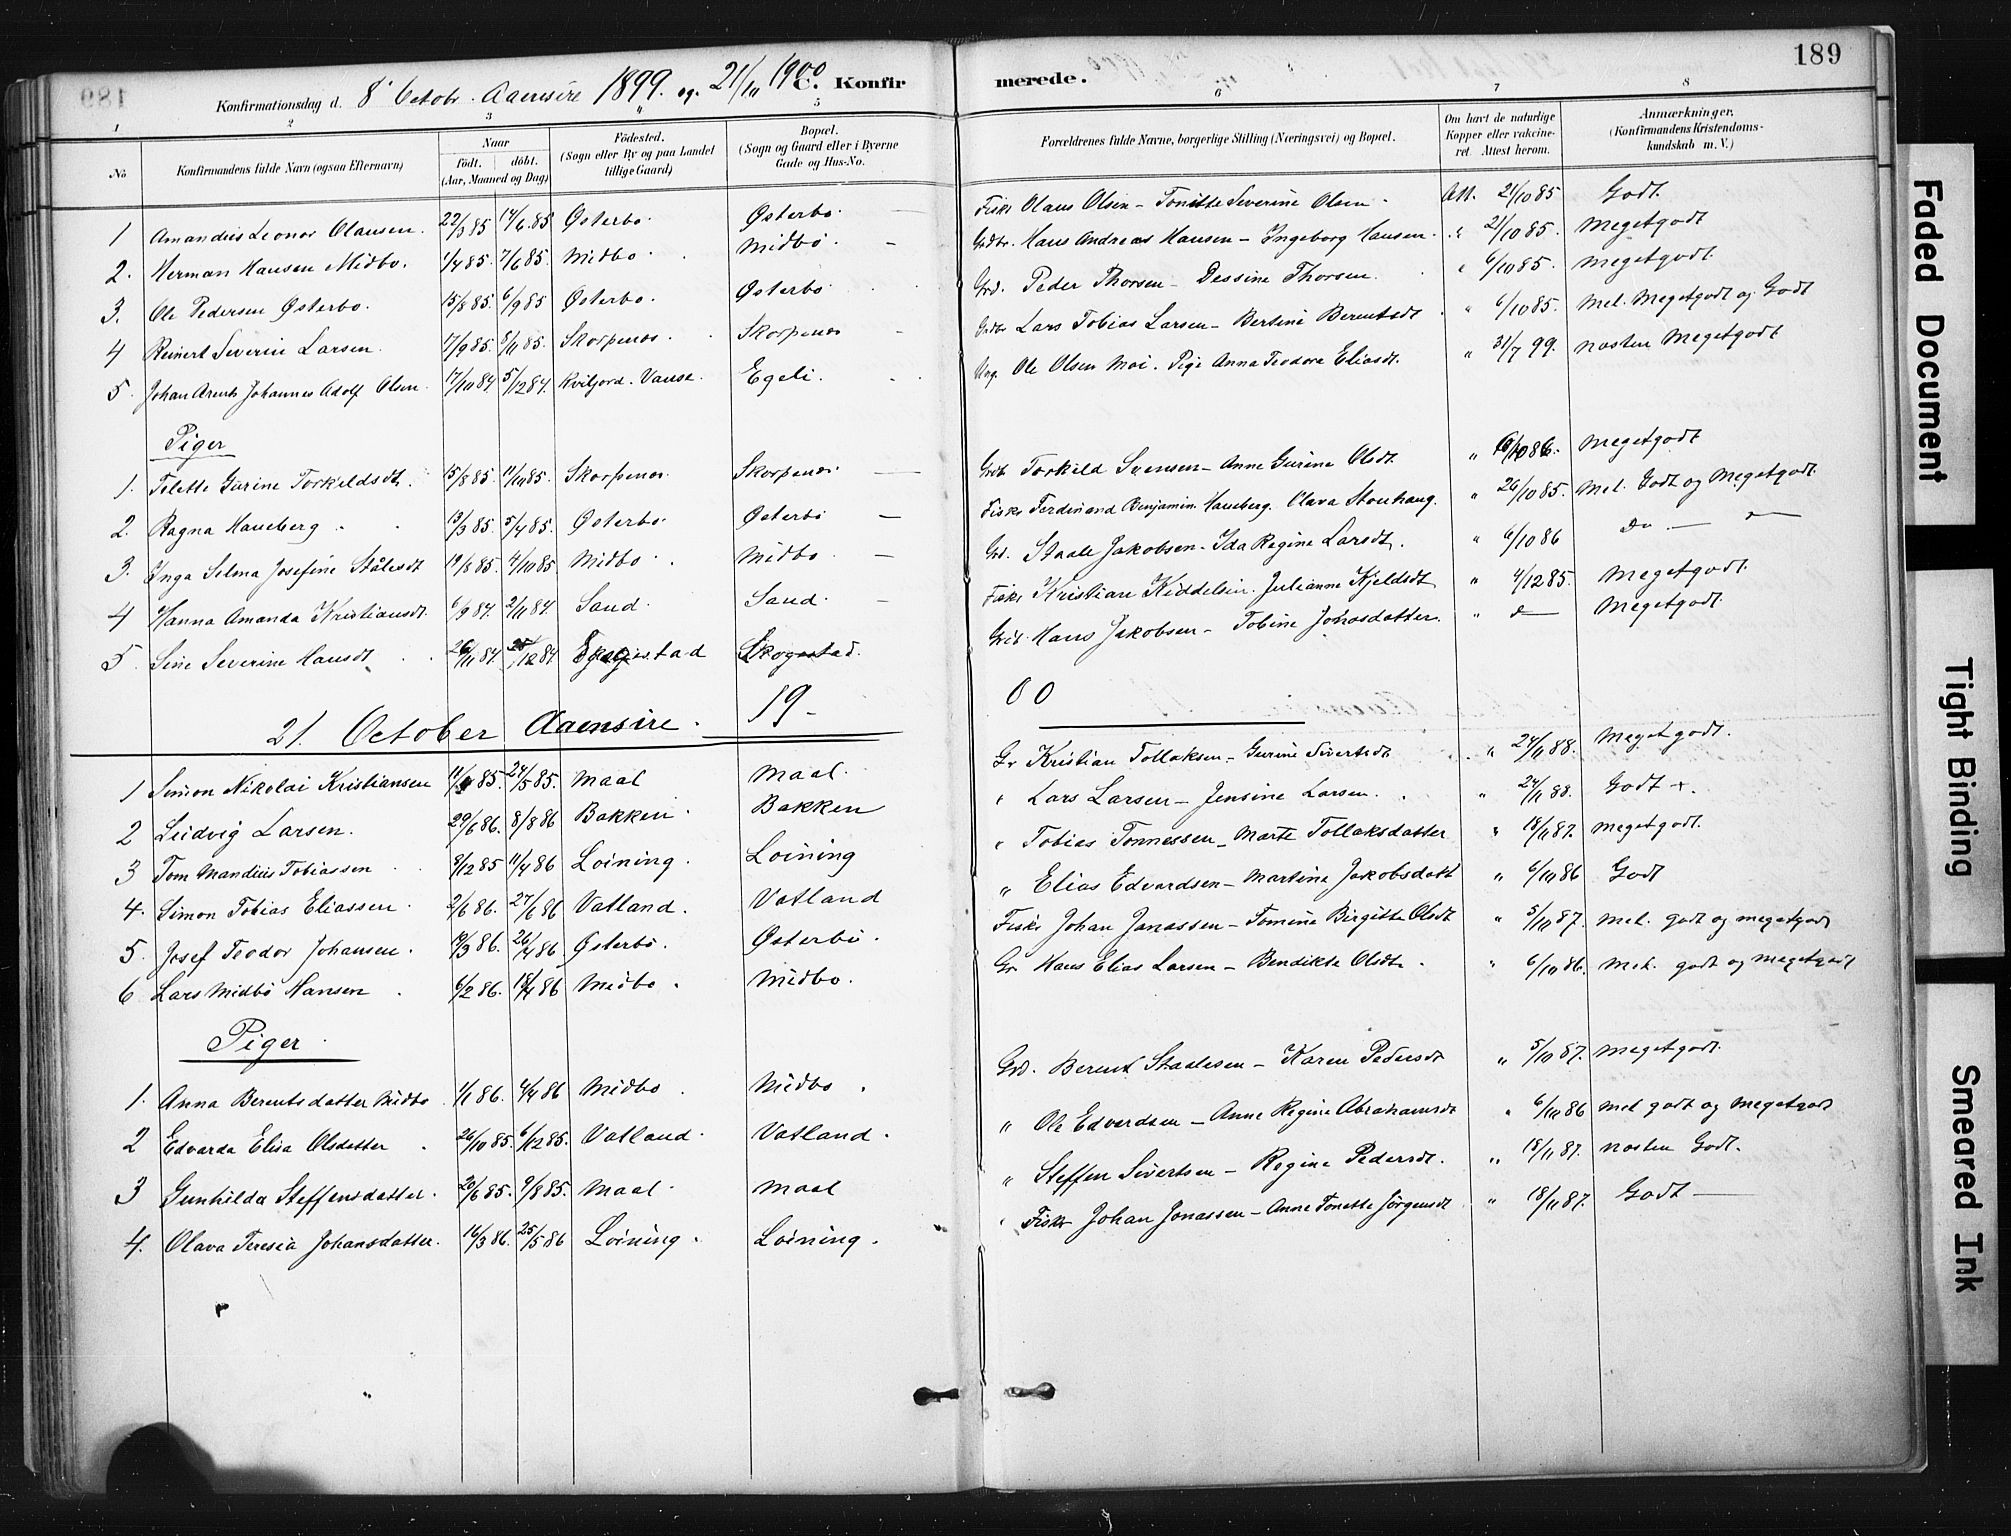 189
Konfirmationsdag d. 8 Octobr. Aaensire 1899. og. 21/11 1900 C. Konfir merede.
1 2 3 4 5 6 7 8
No
Konfirmandens fulde Navn (ogsaa Efternavn)
Naar
født. døbt.
(Aar, Maaned og Dag)
Fødested.
(Sogn eller By og paa Landet
tillige Gaard)
Bopæl.
(Sogn og Gaard eller i Byerne
Gade og Hus-No.
Forældrenes fulde Navne, borgerlige Stilling (Næringsvei) og Bopæl.
Om havt de naturlige
Kopper eller vakcine-
ret. Attest herom.
Anmærkninger.
(Konfirmandens Kristendoms-
kundskab m. V.)
1 Amandus Leonor Olausen. 22/3 85 14/6.85 Østerbo. Østerbo. Fisk. Olaus Olsen – Tonette Severine Olsen. Att. 21/10 85 Godt.
2. Herman Hansen Midbo. 1/4 85. 7/6 85. Midbo Midbo. Grdbr. Hans Andreas Hansen – Ingeborg Hansen. " 21/10 85. Megetgodt
3. Ole Pedersen Østerbo. 15/8 85. 6/9 85 Østerbo. Østerbo Grd. Peder Thorsen – Dessine Thorsen. " 6/10 85. Megetgodt.
4 Reinert Severin Larsen. 7/9 85. 8/11 85. Skorpenes. Skorpenes Grdbr Lars Tobias Larsen – Bertine Berentsdt " 6/10 85. Mel. Megetgodt og Godt
5. Johan Arent Johannes Adolf Olsen. 17/10 84. 5/12 84. Kviljord. Vanse. Egeli. Ung. Ole Olsen Moi. Pige Anna Teodora Eliasdt. " 31/7 99. Næsten Megetgodt
Piger
1. Tolette Gurine Torkildsdt. 15/8 85. 11/10 85. Skorpenes. Skorpenes — Grdb Torkild Svensen – Anne Gurine Olsdt " 6/10 86. Megetgodt
2. Ragna Haneberg. 13/3 85. 5/4 85. Østerbo. Østerbo — Fisk. Ferdinand Benjamin Haneberg. Olava Stouhaug. " 26/10 85. Mel. Godt og Megetgodt.
3. Inga Selma Josefine Stålesdt 19/8 85. 4/10 85. Midbo. Midbo. — Grd. Staale Jakobsen – Ida Regine Larsdt. " 6/10 86 do — do
4 Hanna Amanda Kristiansdt. 6/9 84. 2/11 84. Sand. Sand. — Fisk. Kristian Kiddelsen. Julianne Kjeldsdt " 4/12 85. Megetgodt.
5. Sine Severine Hansdt. 26/11 84. 25/12 84 Skogestad Skogestad. Grdb. Hans Jakobsen – Tobine Jonasdatter. " do Megetgodt.
21. October Aaensire. 19 – 00
1 Simon Nikolai Kristiansen 11/3 85. 24/5 85. Maal Maal. Gr. Kristian Tollaksen – Gurine Sivertsdt " 24/11 88. Megetgodt.
2 Ludvig Larsen. 29/6 86. 8/8 86 Bakken. Bakken " Lars Larsen – Jensine Larsen. " 24/11 88. Godt +.
3 Tom Mandius Tobiassen 8/12 85 11/4 86 Loining. Loining " Tobias Tønnessen – Marte Tollaksdatter " 18/11 87. Megetgodt.
4. Simon Tobias Eliassen. 2/6 86. 27/6 86 Vatland. Vatland " Elias Edvardsen – Martine Jakobsdatt " 6/10 86 Godt
5. Josef Teodor Johansen. 19/3 86. 26/4 86 Østerbo. Østerbo. Fisk. Johan Jonassen – Tomine Birgitte Olsdt " 5/11 87. Mel. godt og megetgodt
6 Lars Midbö Hansen 6/2 86. 18/4 86 Midbo. Midbo. Gr. Hans Elias Larsen – Bendikte Olsdt. " 6/10 86. Mel. godt og megetgodt
Piger.
1. Anna Berentsdatter Midbo 1/1 86. 4/4 86 Midbo Midbo. Grd. Berent Staalesen – Karen Pedersdt " 5/10 87. Megetgodt.
2 Edvarda Elisa Olsdatter 26/10 85. 6/12 85. Vatland. Vatland. " Ole Edvardsen – Anne Regine Abrahamsdt " 6/10 86 Mel godt og Megetgodt
3 Gunhilda Steffensdatter. 20/6 85. 9/8 85. Maal. Maal " Steffen Sivertsen – Regine Pedersdt. " 18/11 87. Næsten Godt.
4. Olava Teresia Johansdatter. 16/3 86. 25/5 86 Loining. Loining. " Fisk. Johan Jonassen – Anne Tonette Jørgensdt " 18/11 87. Godt —
Faded Document
Tight Binding
Smeared Ink